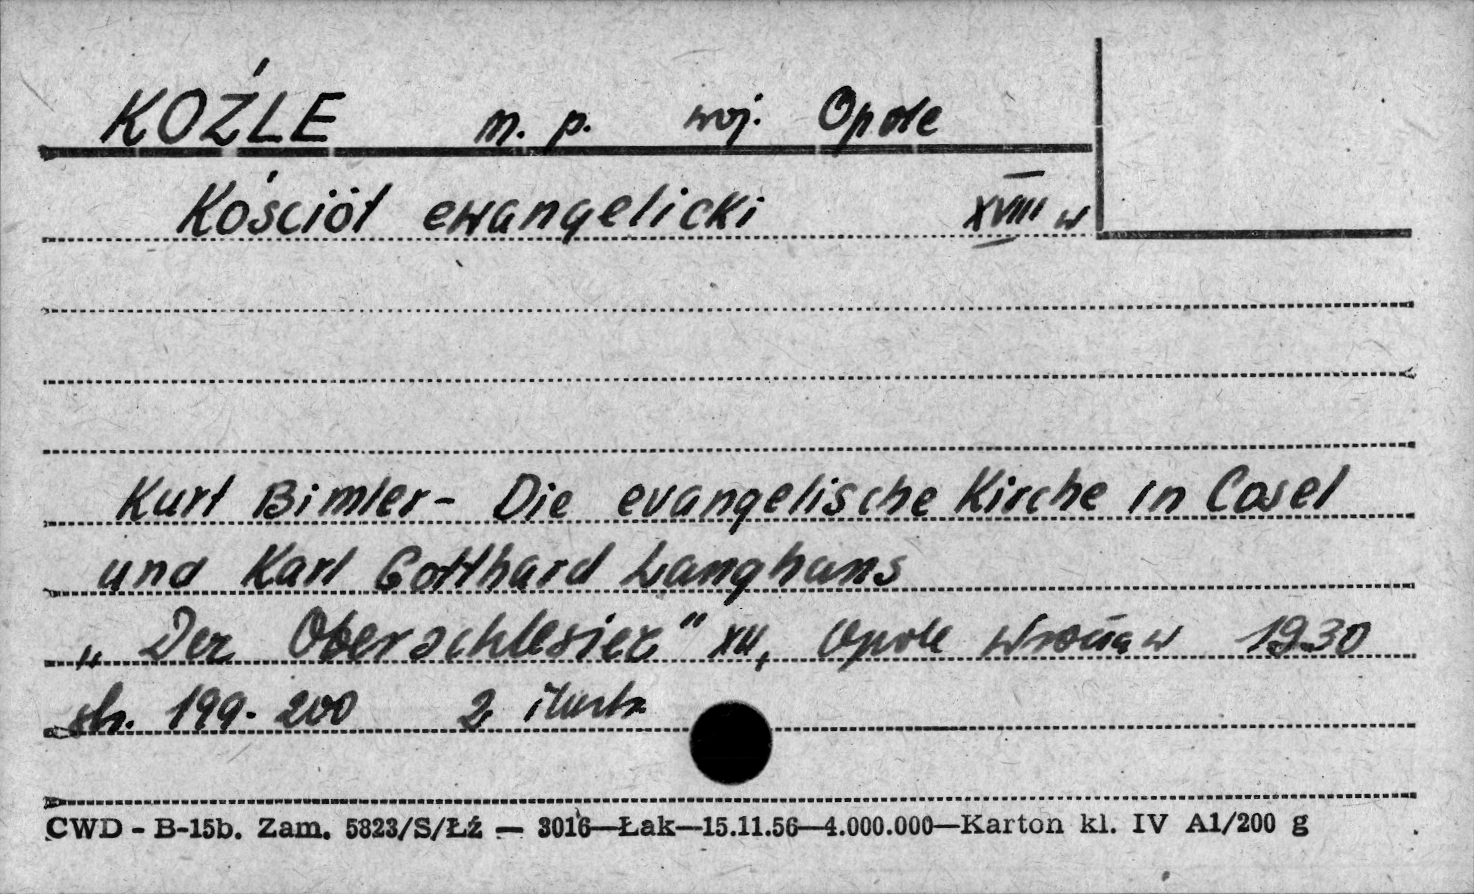 KOŹLE m. p. woj. Opole
Kościół ewangelicki XVIII w
Kurt Bimler - Die evangelische Kirche in Cosel
und Karl Gotthard Langhans
„Der Oberschlesier" XII, Opole Wrocław 1930
str. 199-200 2 ilustr.
CWD - B-15b. Zam. 5823/S/Łź — 3016—Łak—15.11.56—4.000.000—Karton kl. IV A1/200 g